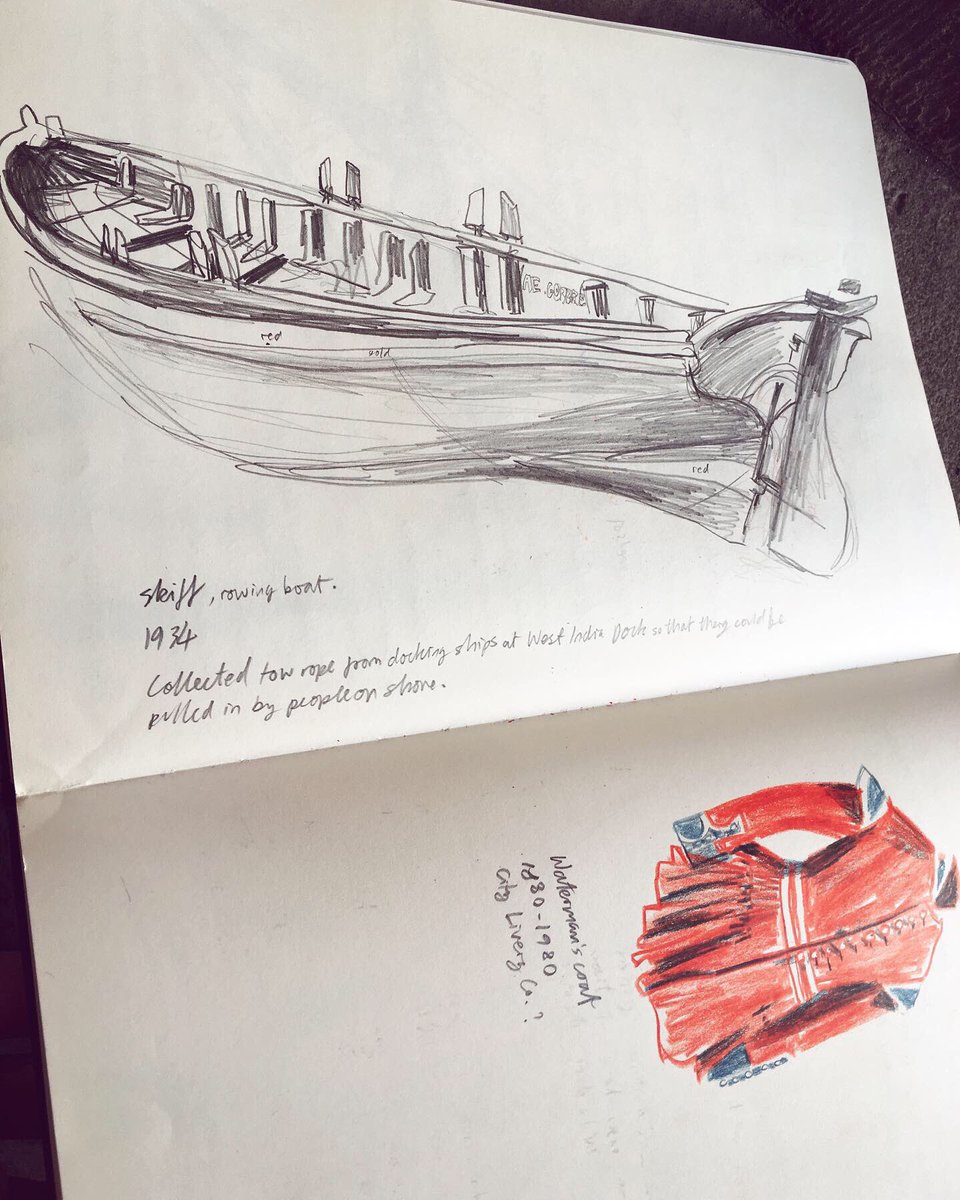 AE.
red
gold
red
skiff, rowing boat.
1934
Collected tow rope from docking ships at West India Dock so that they could be
pulled in by people on shore.
Waterman's coat
1880-1980
City Livery Co.?